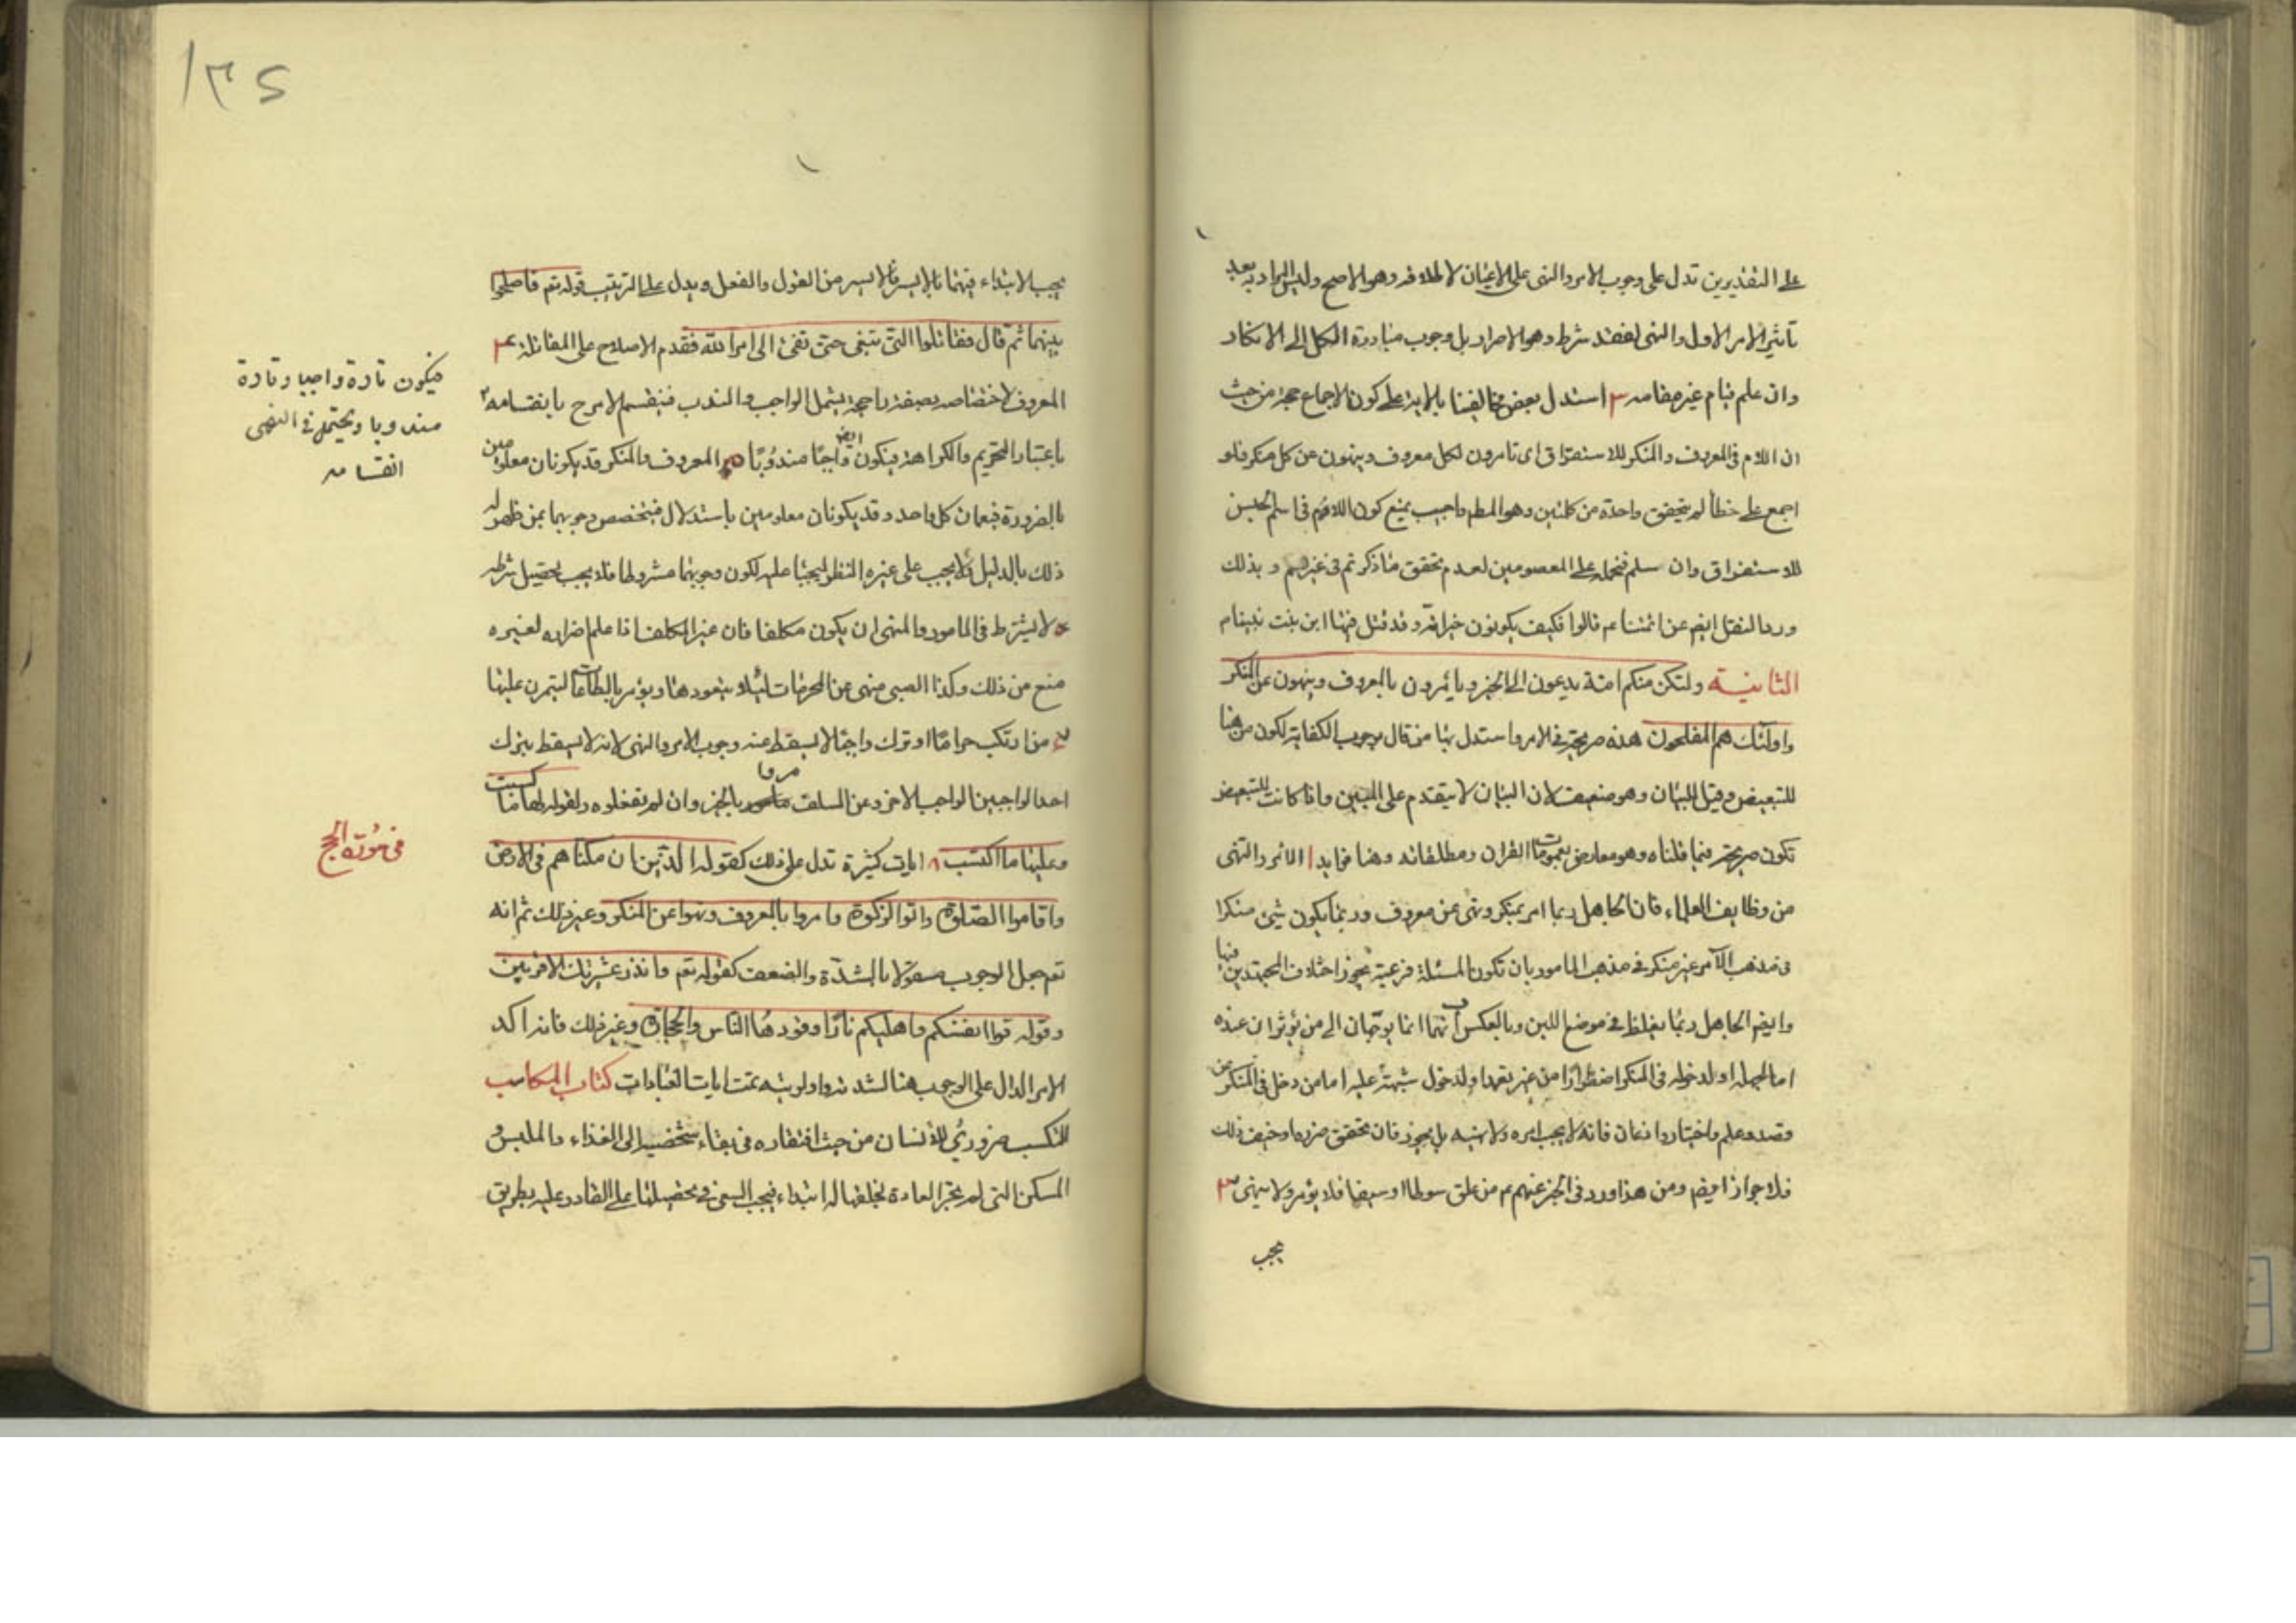 على التقديرين تدل على وجوب الامر والنهى على الاعيان لاطلاقه وهو الاصح وليس المراد به بعد
تاثير الامر الاول والنهى لفقد شرط وهو الاصرار بل وجوب مبادرة الكل الى الانكار
وان علم قيام غيره مقامه ٣ استدل بعض مخالفينا بالاية على كون الاجماع حجة من حيث
ان اللام فى المعروف والمنكر للاستغراق اى تامرون لكل معروف وينهون عن كل منكر فلو
اجمع على خطأ لم يتحقق واحدة من كلتين وهو المط واجيب بمنع كون اللام فى اسم الجنس
للاستغراق وان سلم فنحمله على المعصومين لعدم تحقق ما ذكرتم فى غيرهم وبذلك
ورد النقل ايضم عن ائمتنا عم قالوا فكيف يكونون خير امّة وقد قتل فيها ابن بنت نبينا م
الثانيـة ولتكن منكم امة يدعون الى الخير ويأمرون بالمعروف وينهون عن المنكر
واولئك هم المفلحون هذه صريحة فى الامر واستدل بها من قال بوجوب الكفاية لكون من هنا
للتبعيض وقيل للبيان وهو ضعيف لان البيان لا يتقدم على المبين واذا كانت للتبعيض
تكون صريحة فيما قلناه وهو معارض بعمومات القران ومطلقاته وهنا فوايد ا الامر والنهى
من وظايف العلماء فان الجاهل ربما امر بمنكر ونهى عن معروف وربما يكون شئ منكرا
فى مذهب الآمر غير منكر فى مذهب المامور بان تكون المسئلة فرعية يجوز اختلاف المجتهدين فيها
وايضم الجاهل ربما يغلظ فى موضع اللين وبالعكس ب انهما انما يوجهان الى من يؤثران عنده
اما لجهله او لدخوله فى المنكر اضطرارا من غير تعمد او لدخول شبهة عليه اما من دخل فى المنكر عن
قصد وعلم واختيار واذعان فانه لا يجب امره ولا نهيه بل يجوز فان تحقق ضرره او خيف ذلك
فلا جواز ايضم ومن هذا ورد فى الخبر عنهم عم من علق سوطا او سيفا فلا يؤمر ولا ينهى ٣
يجب
١٣٤
يجب الابتداء فيهما بالايسر فالايسر من القول والفعل ويدل على الترتيب قوله تعم فاصلحوا
بينهما ثم قال فقاتلوا التى تبغى حتى تفئ الى امر الله فقدم الاصلاح على المقاتلة ٤
المعروف لاختصاصه بصفة راجحة يشمل الواجب والمندب فينقسم الامر ح بانقسامه
فيكون تارة واجبا وتارة
مندوبا ويحتمل فى النهى
انقسامه
باعتبار التحريم والكراهة فيكون ايض واجبًا مندوبًا ٥ المعروف والمنكر قد يكونان معلومين
بالضرورة فيعمان كل واحد وقد يكونان معلومين باستدلال فيتخصص وجوبهما بمن ظهر له
ذلك بالدليل ولا يجب على غيره النظر ليجبا عليه لكون وجوبهما مشروطا فلا يجب تحصيل شرطه
لا يشترط فى المامور والمنهى ان يكون مكلفا فان غير المكلف اذا علم اضراره لغيره
منع من ذلك وكذا الصبى منهى عن المحرمات لئلا يتعودها ويؤمر بالطاعات ليتمرن عليها
من ارتكب حراما او ترك واجبًا لا يسقط عنه وجوب الامر والنهى لانه لا يسقط بترك
احد الواجبين الواجب الاخر وعن السلف مروا بالخير وان لم تفعلوه ولقوله لها ما كسبت
وعليها ما اكتسب ٨ ايات كثيرة تدل على ذلك كقوله الذين ان مكناهم فى الارض
فى سورة الحج
واقاموا الصلوة واتوا الزكوة وامروا بالمعروف ونهوا عن المنكر وغير ذلك ثم انه
تعم جعل الوجوب مقولا بالشدّة والضعف كقوله تعم وانذر عشيرتك الاقربين
وقوله قوا انفسكم واهليكم نارًا وقودها الناس والحجارة وغير ذلك فانه اكد
الامر الدال على الوجوب هنا لشد تمت ايات العبادات كتاب المكاسب
التكسب ضروري للانسان من حيث افتقاره فى بقاء شخصه الى الغذاء والملبس و
المسكن التى لم تجر العادة بخلقها له ابتداء فيجب السعى فى تحصيلها على القادر عليه بطريق